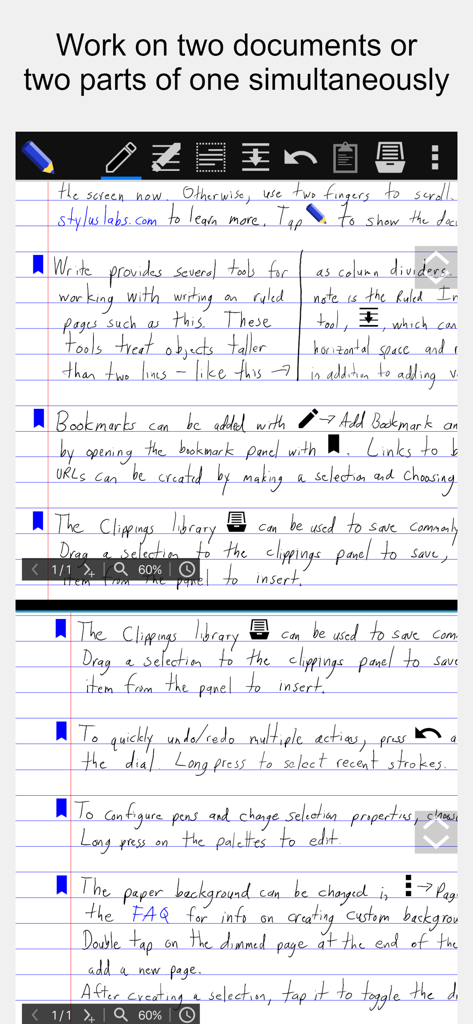 Work on two documents or
two parts of one simultaneously
the screen now. Otherwise, use two fingers to scroll.
styluslabs.com to learn more. Tap to show the doc
Write provides several tools for
working with writing on ruled
pages such as this. These
tools treat objects taller
than two lines – like this →
as column dividers.
note is the Ruled In
tool, , which can
horizontal space and
in addition to adding v
Bookmarks can be added with → Add Bookmark an
by opening the bookmark panel with . Links to b
URLs can be created by making a selection and choosing
The Clippings library can be used to save commonly
Drag a selection to the clippings panel to save,
item from the panel to insert.
1/1 60%
The Clippings library can be used to save com
Drag a selection to the clippings panel to save
item from the panel to insert.
To quickly undo/redo multiple actions, press a
the dial. Long press to select recent strokes.
To configure pens and change selection properties, choos
Long press on the palettes to edit.
The paper background can be changed in → Pag
the FAQ for info on creating custom backgrou
Double tap on the dimmed page at the end of the
add a new page.
After creating a selection, tap it to toggle the d
1/1 60%